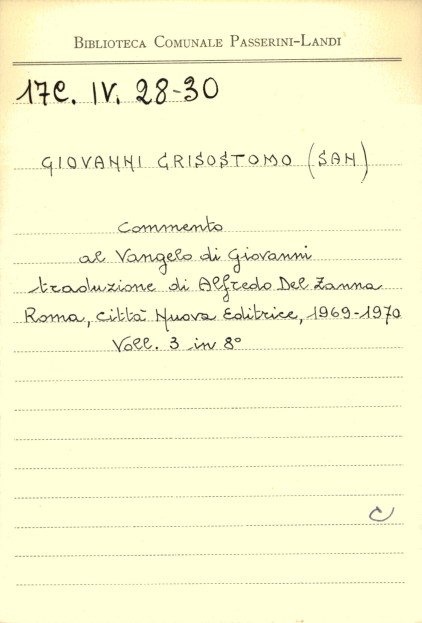 BIBLIOTECA COMUNALE PASSERINI-LANDI
17C. IV. 28-30
GIOVANNI CRISOSTOMO (SAN)
Commento
al Vangelo di Giovanni
traduzione di Alfredo Del Zanna
Roma, Città Nuova Editrice, 1969-1970
Voll. 3 in 8°
C